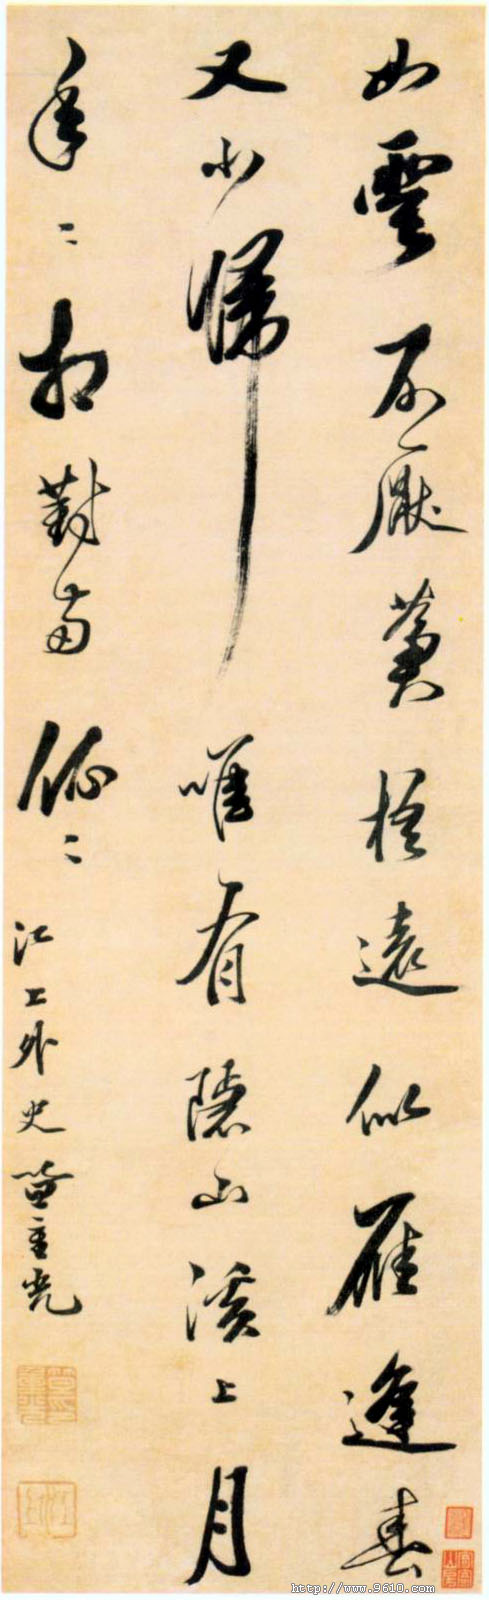 如雲不厭蒼梧遠似雁逢春
又北歸唯有隱山溪上月
年〻相對兩依〻
江上外史笪重光
http://www.9610.com